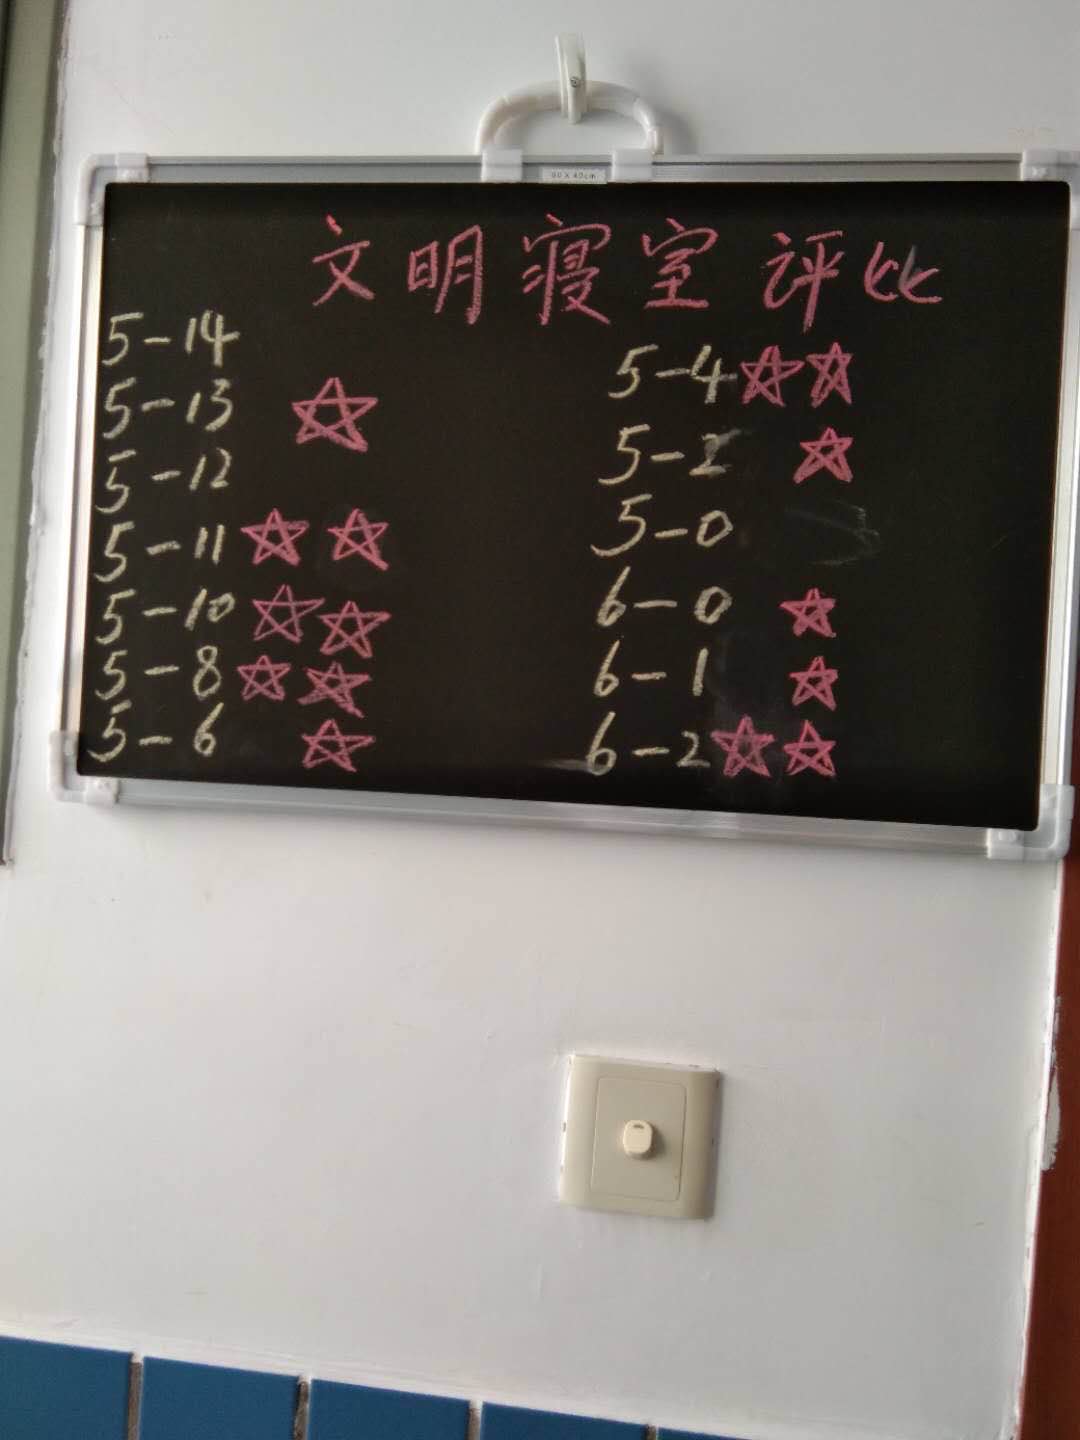 60 X 40cm
文明寝室评比
5-14
5-13
5-12
5-11
5-10
5-8
5-6
5-4
5-2
5-0
6-0
6-1
6-2